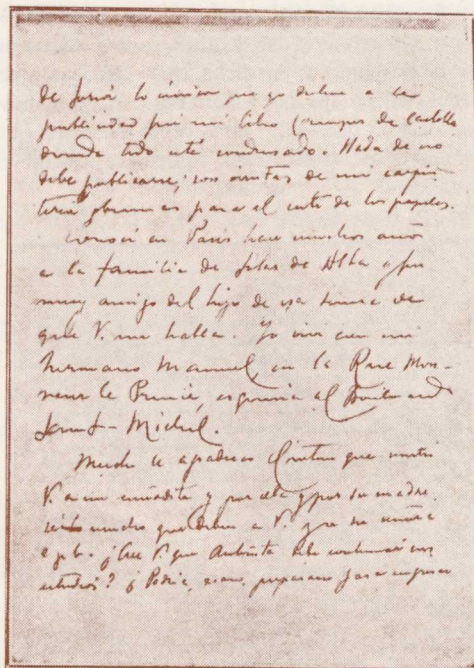 de Soria lo único que yo debía a la
publicidad fué mi libro Campos de Castilla
donde todo está condensado. Nada de eso
debe publicarse; son virutas de mi carpin-
tería, para el cesto de los papeles.
Conocí en París hace muchos años
a la familia de de Alba y fui
muy amigo del hijo de esa señora de
que V. me habla. Yo viví con mi
hermano Manuel, en la Rue Mon-
sieur le Prince, esquina al Boulevard
Saint-Michel.
Mucho le agradezco el interés que
V. a mi cuñadita y por ella y por su madre
mucho que deben a V. y a su
¿Cree V. que Antoñita debe continuar sus
estudios? ¿Podría, acaso, prepararse para ingresar